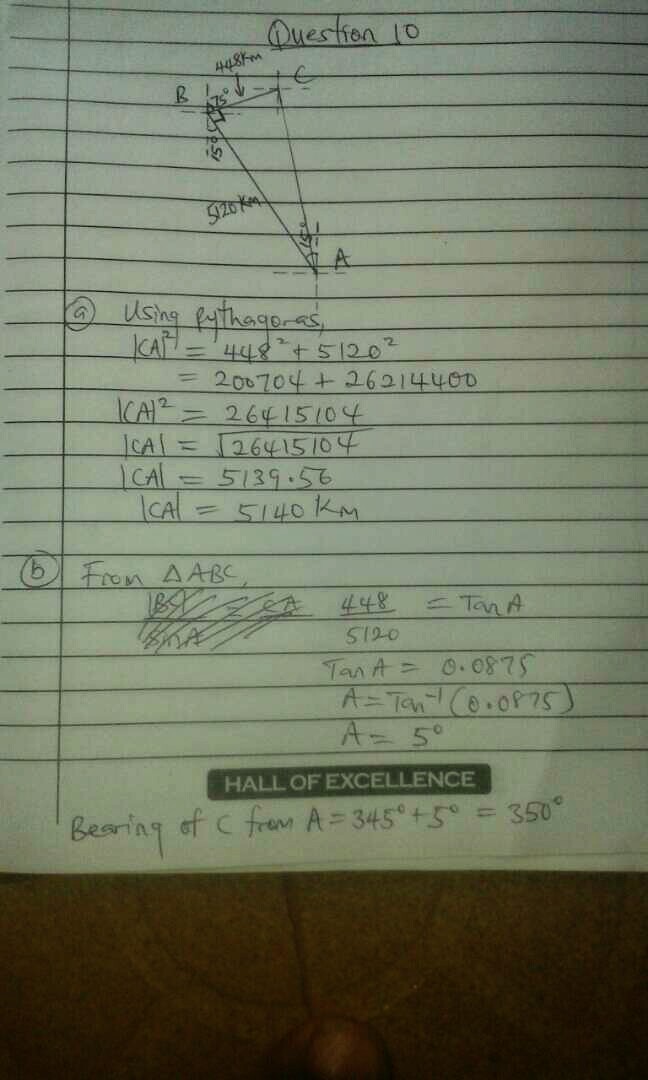 Question 10
448Km
C
B
75°
15°
5120 Km
15°
A
(a) Using Pythagoras,
|CA|² = 448² + 5120²
= 200704 + 26214400
|CA|² = 26415104
|CA| = √26415104
|CA| = 5139.56
|CA| = 5140 Km
(b) From △ABC,
448 = Tan A
5120
Tan A = 0.0875
A = Tan⁻¹ (0.0875)
A = 5°
HALL OF EXCELLENCE
Bearing of C from A = 345° + 5° = 350°